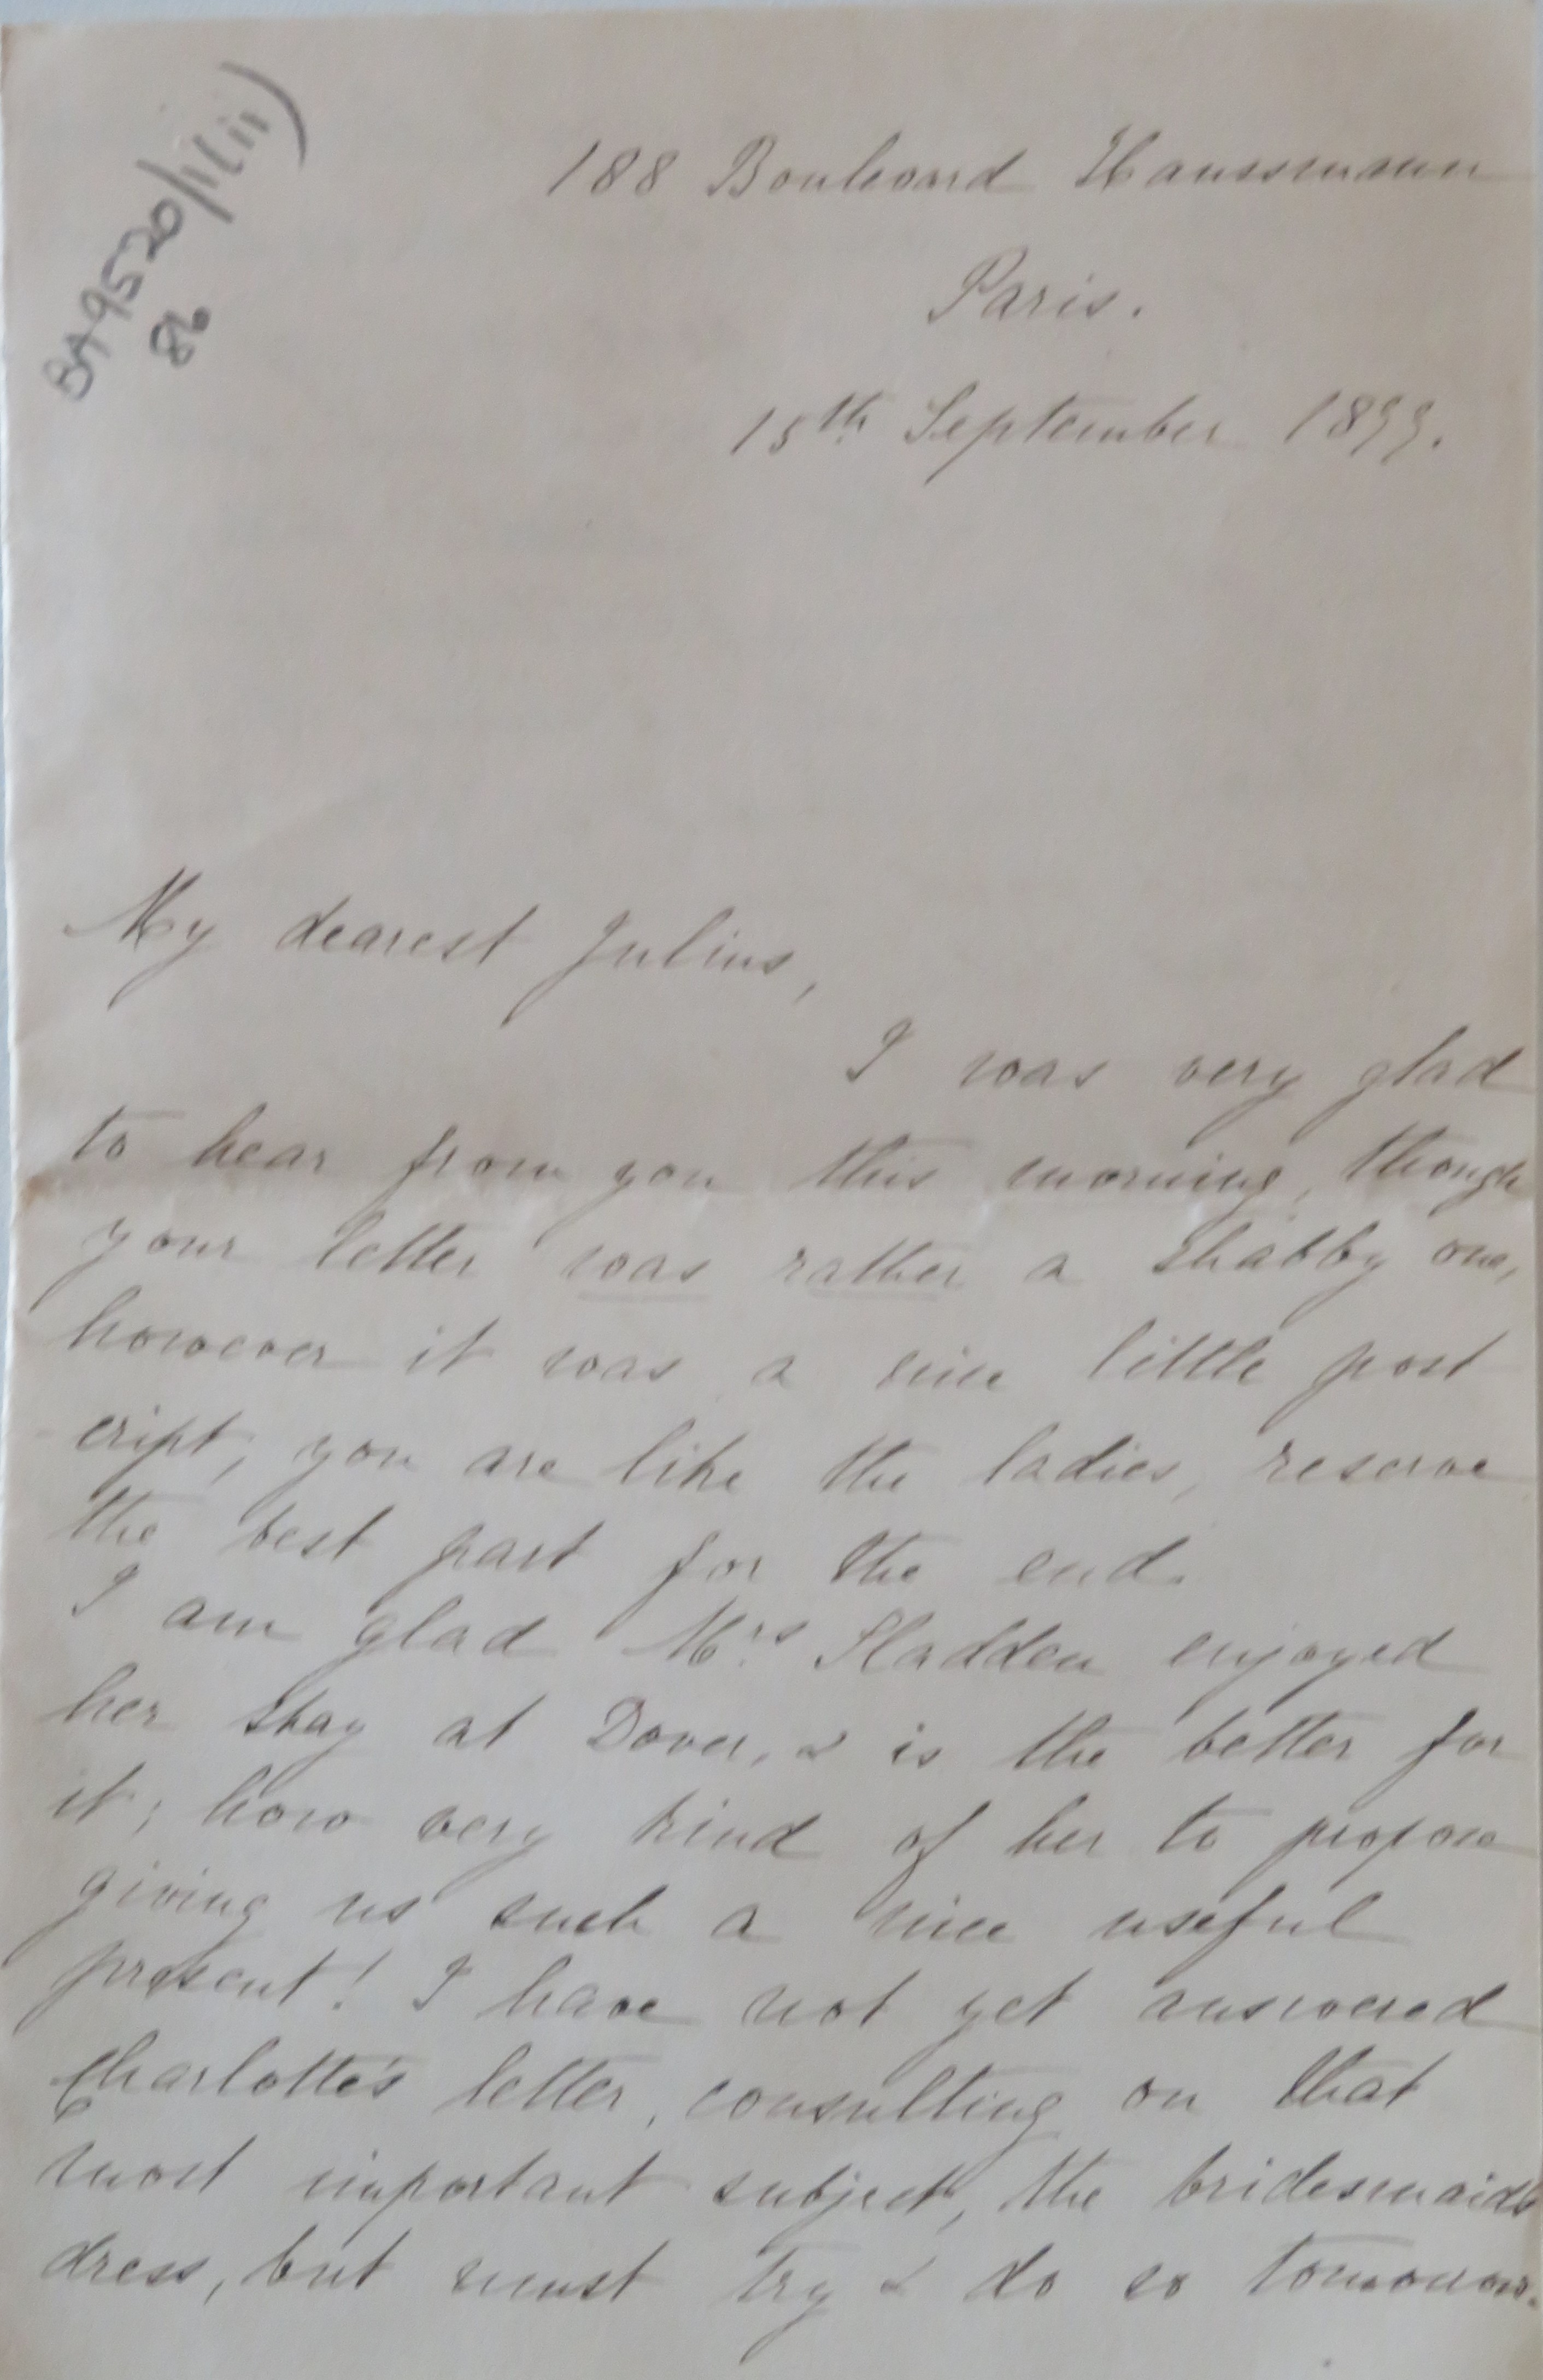 BA9520/1(ii)
86
188 Boulevard Haussmann
Paris.
15th September 1899.
My dearest Julius,
I was very glad
to hear from you this morning, though
your letter was rather a shabby one,
however it was a nice little post
cript, you are like the ladies, reserve
the best part for the end.
I am glad Mrs Sladden enjoyed
her stay at Dover, & is the better for
it; how very kind of her to propose
giving us such a nice useful
present! I have not yet answered
Charlotte's letter, consulting on that
most important subject, the bridesmaids
dress, but must try & do so tomorrow.